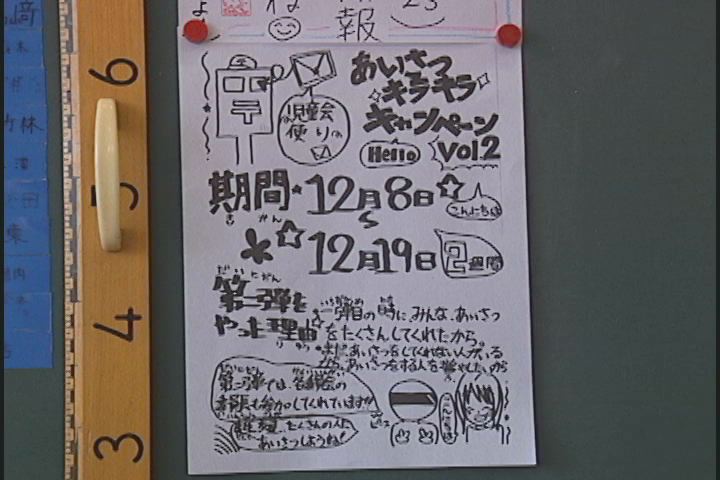 報
〒
児童会
便りの
あいさつ
キラキラ
キャンペーン
Hello
Vol.2
期間
きかん
12月8日
こんにちは
12月19日
2週間
だいにだん
第二弾を
やった理由
りゆう
一弾目の時に、みんな、あいさつ
をたくさんしてくれたから。
まだ、あいさつをしてくれない人がいる
から、あいさつをする人を増やしたいから
第二弾では、各委員会の
部長も参加してくれています!!
たくさんの人に
あいさつしようね!
こんにちは
6
5
4
3
林
田
東
内